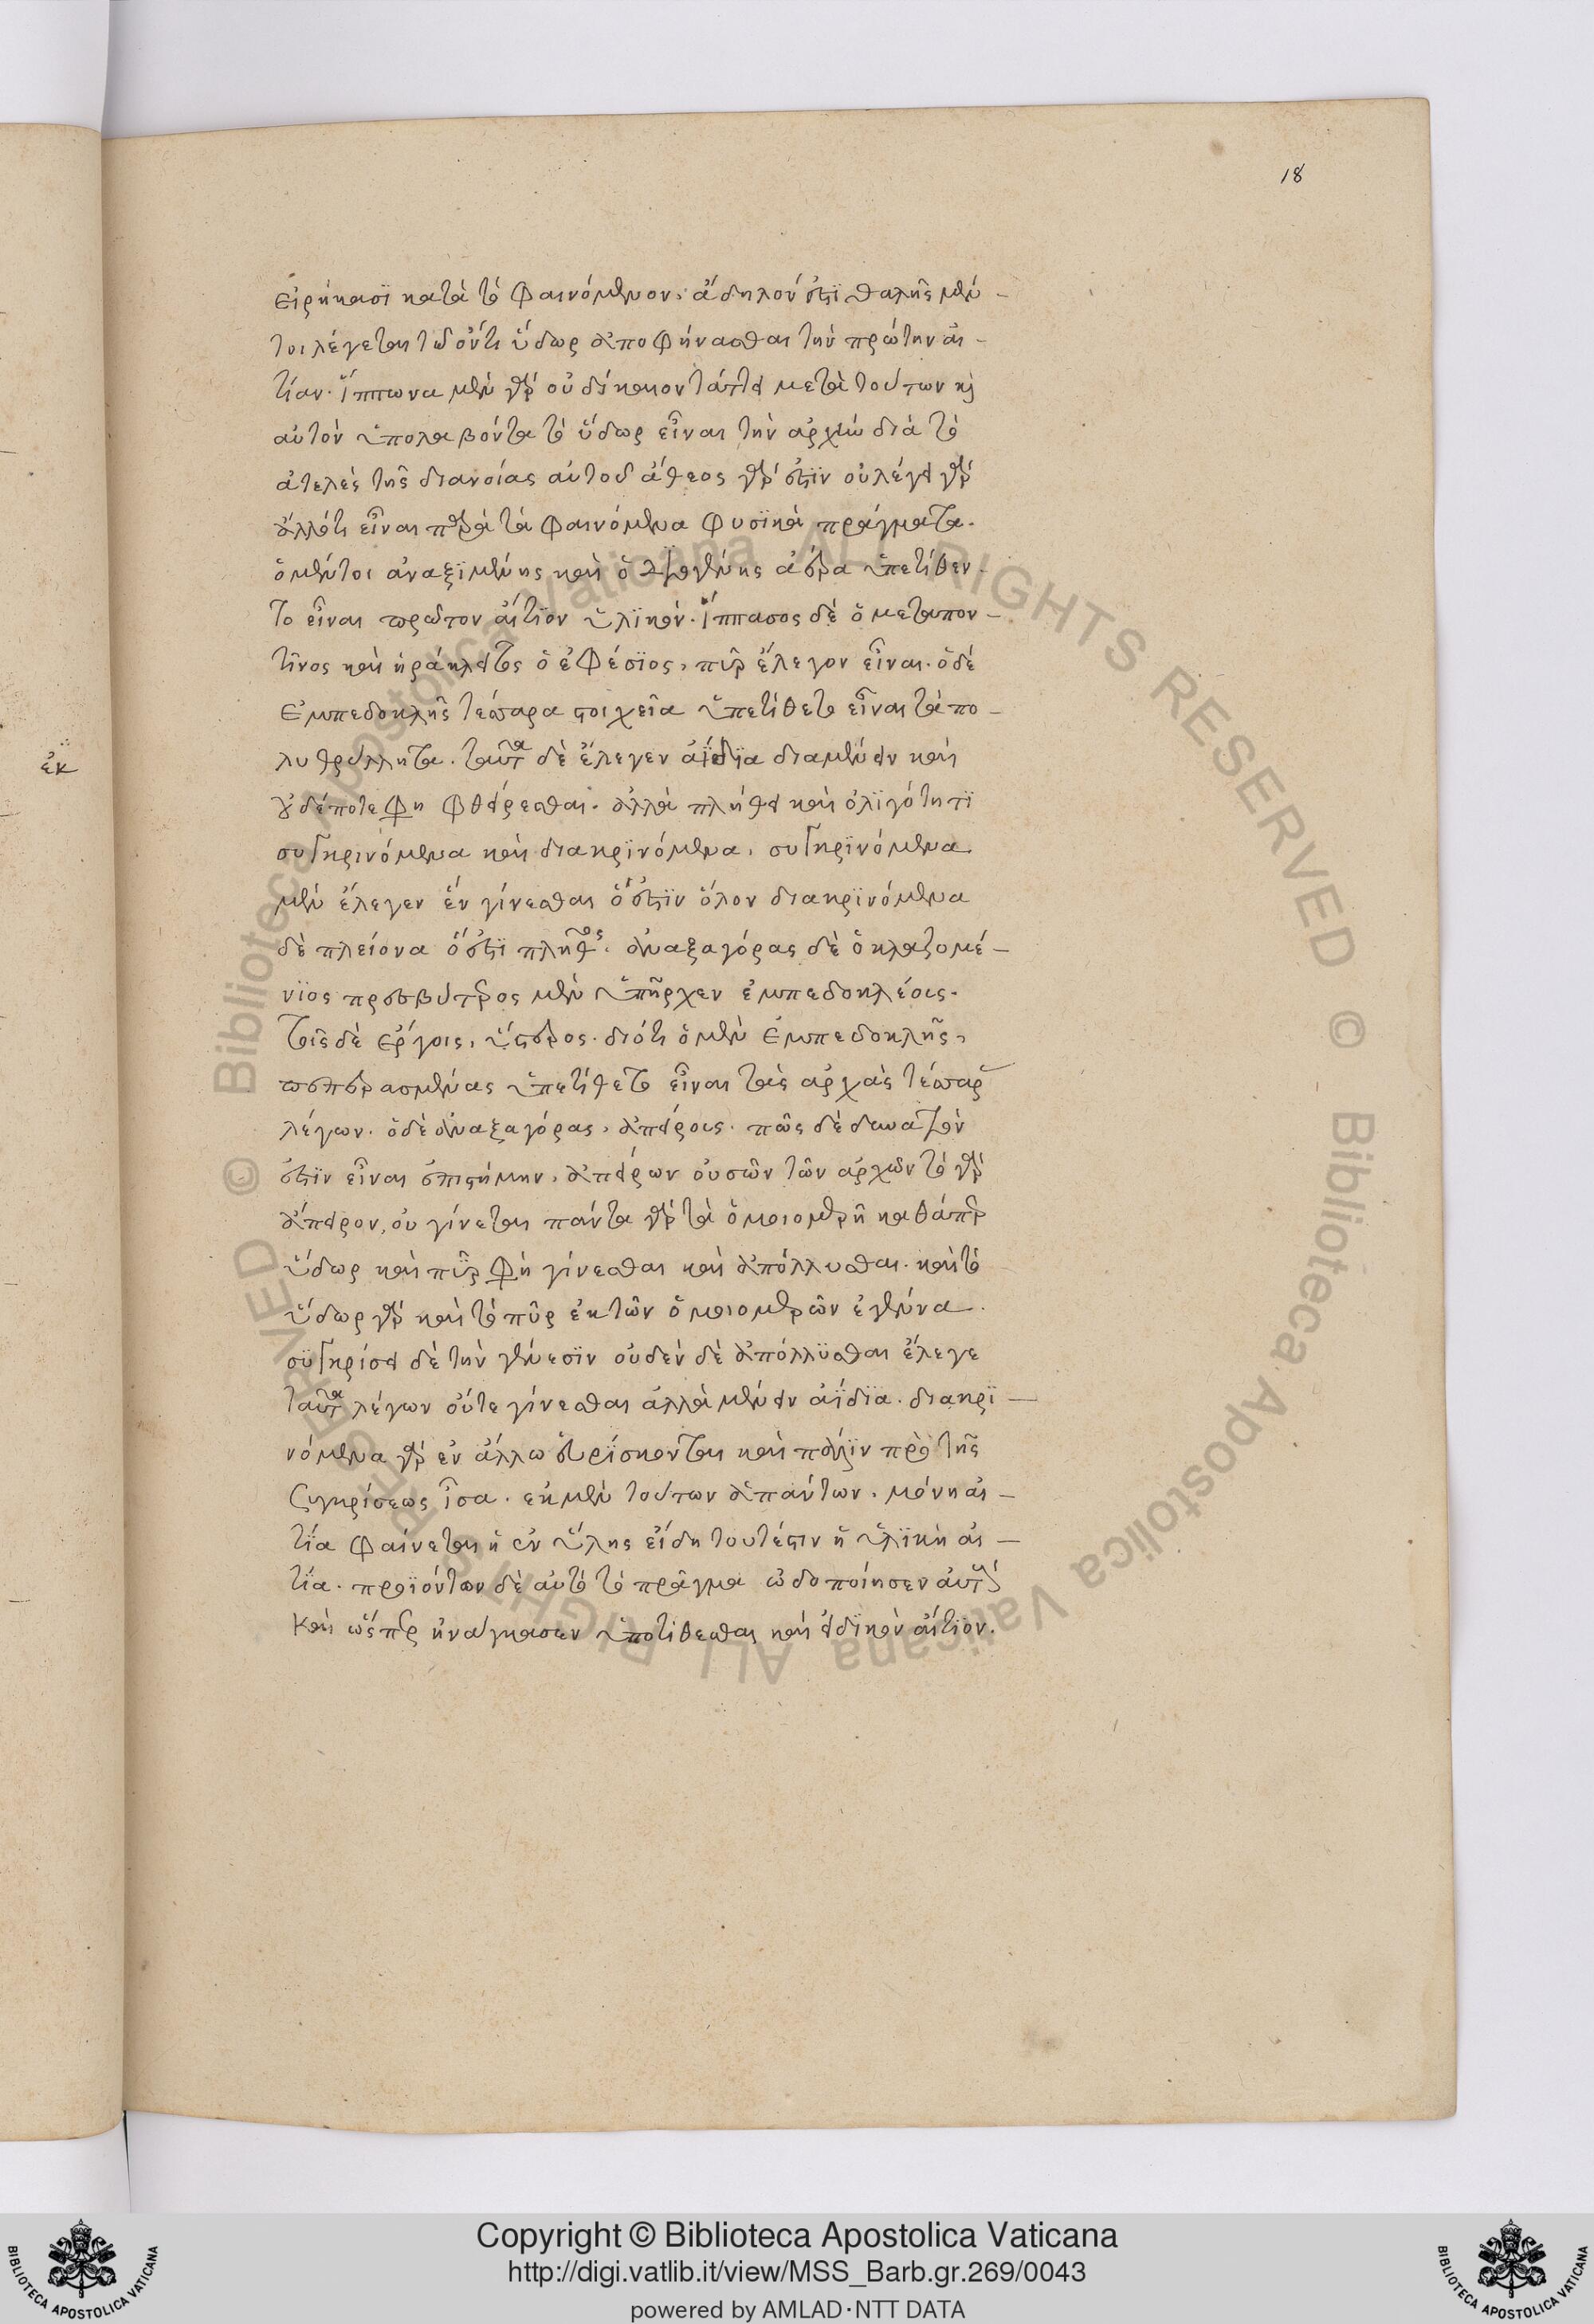 18
εἰρήκασϊ κατὰ τὸ φαινόμενον, ἄδηλόν ἐστϊ θαλῆς μέν-
τοι λέγεται τῶ ὄντι ὕδωρ ἀποφήνασθαι τὴν πρώτην αἰ-
τίαν. ἵππωνα μὲν γὰρ οὐ δίκαιον τάττειν μετὰ τούτων καὶ
αὐτὸν ὑπολαβόντα τὸ ὕδωρ εἶναι τὴν ἀρχὴν διὰ τὸ
ἀτελὲς τῆς διανοίας αὐτοῦ ἄθεος γάρ ἐστϊν οὐ λέγει γὰρ
ἄλλό τι εἶναι παρὰ τὰ φαινόμενα φυσϊκὰ πράγματα.
ὁ μέντοι ἀναξϊμένης καὶ ὁ διογένης ἀέρα ὑπετίθεν-
το εἶναι πρῶτον αἴτϊον ὑλϊκόν. ἵππασος δὲ ὁ μεταπον-
τῖνος καὶ ἡράκλειτος ὁ ἐφέσϊος, πῦρ ἔλεγον εἶναι. ὁ δὲ
Ἐμπεδοκλῆς τέσσαρα στοιχεῖα ὑπετίθετο εἶναι τὰ πο-
λυθρύλλητα. ταῦτα δὲ ἔλεγεν ἀΐδϊα διαμένειν καὶ
οὐδέποτε φη φθείρεσθαι. ἀλλὰ πλήθει καὶ ὀλϊγότητϊ
συγκρινόμενα καὶ διακρϊνόμενα, συγκρϊνόμενα
μὲν ἔλεγεν ἓν γίνεσθαι ὅ ἐστϊν ὅλον διακρϊνόμενα
δὲ πλείονα ὅ ἐστϊ πλῆθος. ἀναξαγόρας δὲ ὁ κλαζομέ-
νϊος πρεσβύτερος μὲν ὑπῆρχεν ἐμπεδοκλέους.
τοῖς δὲ ἔργοις, ὕστερος. διότι ὁ μὲν Ἐμπεδοκλῆς,
πεπερασμένας ὑπετίθετο εἶναι τὰς ἀρχὰς τέσσαρας
λέγων. ὁ δὲ ἀναξαγόρας, ἀπείρους. πῶς δὲ δυνατὸν
ἐστϊν εἶναι ἐπιστήμην, ἀπείρων οὐσῶν τῶν ἀρχῶν τὸ γὰρ
ἄπειρον, οὐ γίνεται πάντα γὰρ τὰ ὁμοιομερῆ καθάπερ
ὕδωρ καὶ πῦρ φὴ γίνεσθαι καὶ ἀπόλλυσθαι. καὶ τὸ
ὕδωρ γὰρ καὶ τὸ πῦρ ἐκ τῶν ὁμοιομερῶν ἐγένα.
συγκρίσει δὲ τὴν γένεσϊν οὐδὲν δὲ ἀπόλλϋσθαι ἔλεγε
ταῦτα λέγων οὔτε γίνεσθαι ἀλλὰ μένειν ἀΐδϊα. διακρϊ-
νόμενα γὰρ ἐν ἄλλω εὑρίσκονται καὶ πάλϊν πρὸ τῆς
συγκρίσεως ἴσα. ἐκ μὲν τούτων ἁπάντων. μόνη αἰ-
τία φαίνεται ἡ ἐν ὕλης εἴδη τουτέστιν ἡ ὑλϊκὴ αἰ-
τία. προϊόντων δὲ αὐτὸ τὸ πρᾶγμα ὡδοποίησεν αὐτοὺς
καὶ ὥσπερ ἠνάγκασεν ὑποτίθεσθαι καὶ εἰδϊκὸν αἴτϊον.
ἐκ
Copyright © Biblioteca Apostolica Vaticana
http://digi.vatlib.it/view/MSS_Barb.gr.269/0043
powered by AMLAD·NTT DATA
BIBLIOTECA APOSTOLICA VATICANA
BIBLIOTECA APOSTOLICA VATICANA
© Biblioteca Apostolica Vaticana ALL RIGHTS RESERVED
© Biblioteca Apostolica Vaticana ALL RIGHTS RESERVED